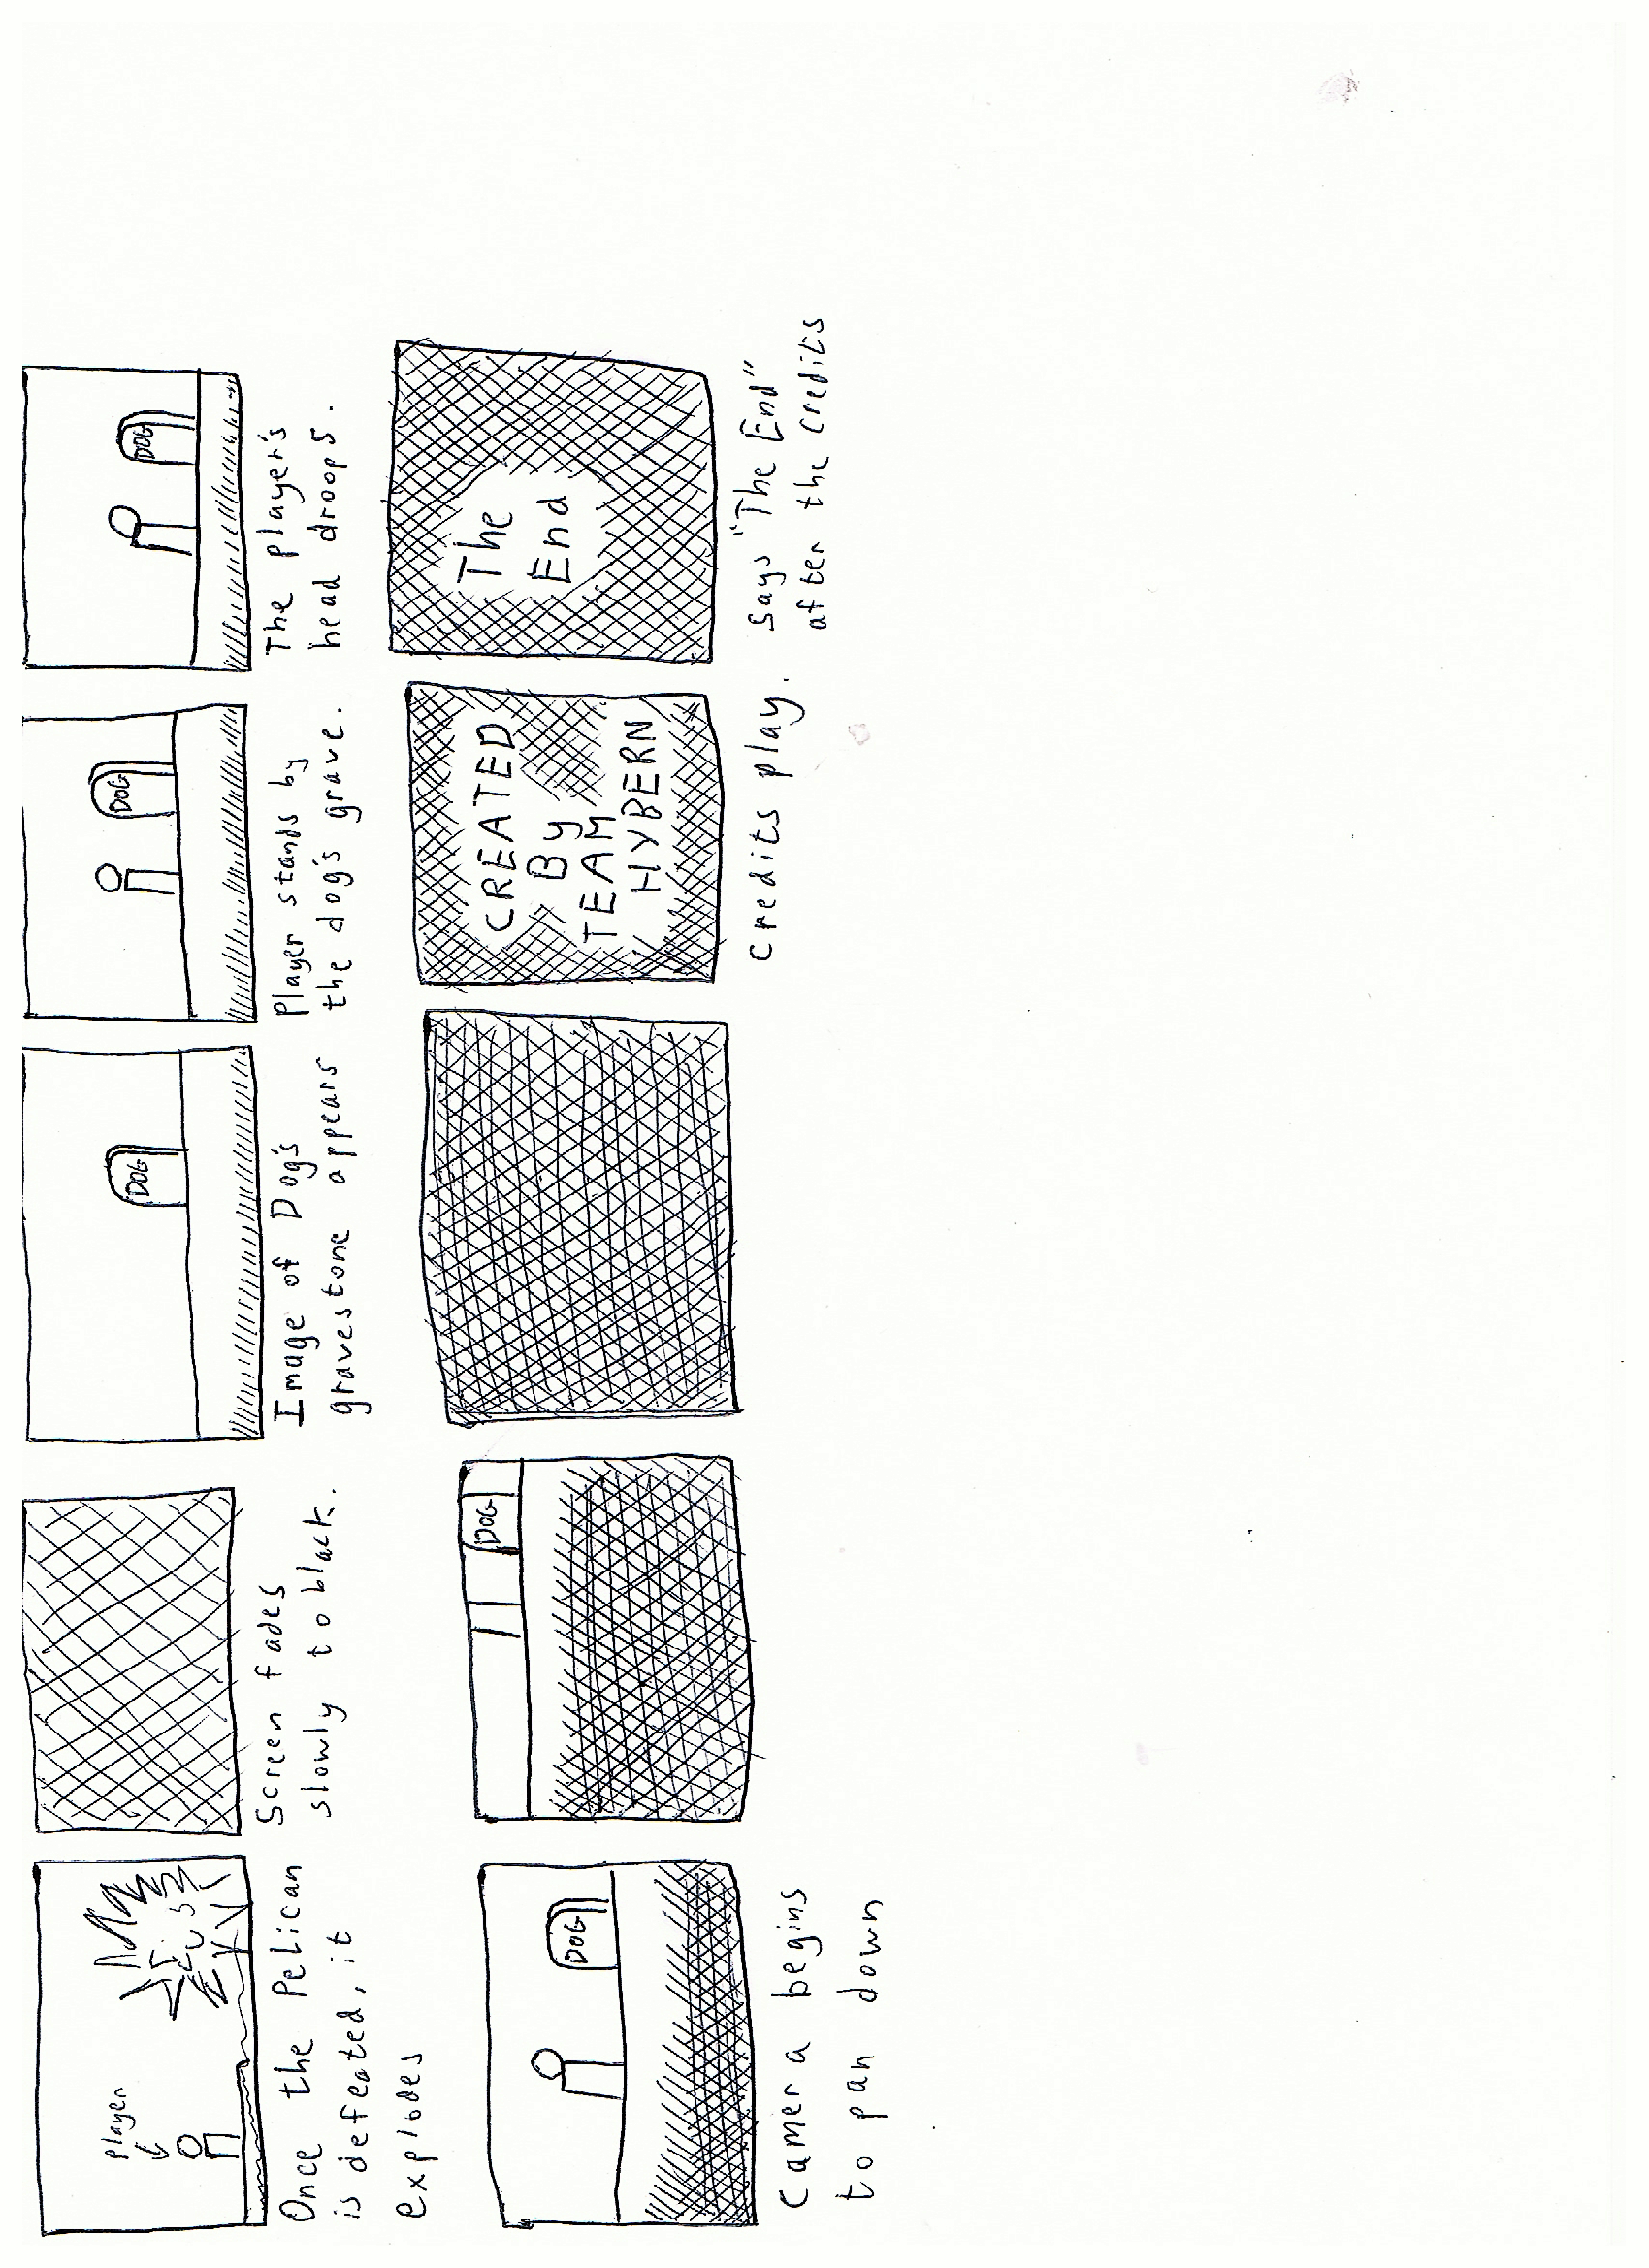 Player
Once the Pelican
is defeated, it
explodes
Screen fades
slowly to black.
DOG
Image of Dog's
gravestone appears
DOG
Player stands by
the dog's grave.
DOG
The player's
head droops.
DOG
Camera begins
to pan down
DOG
CREATED
BY
TEAM
HYBERN
Credits play.
The
End
Says "The End"
after the credits